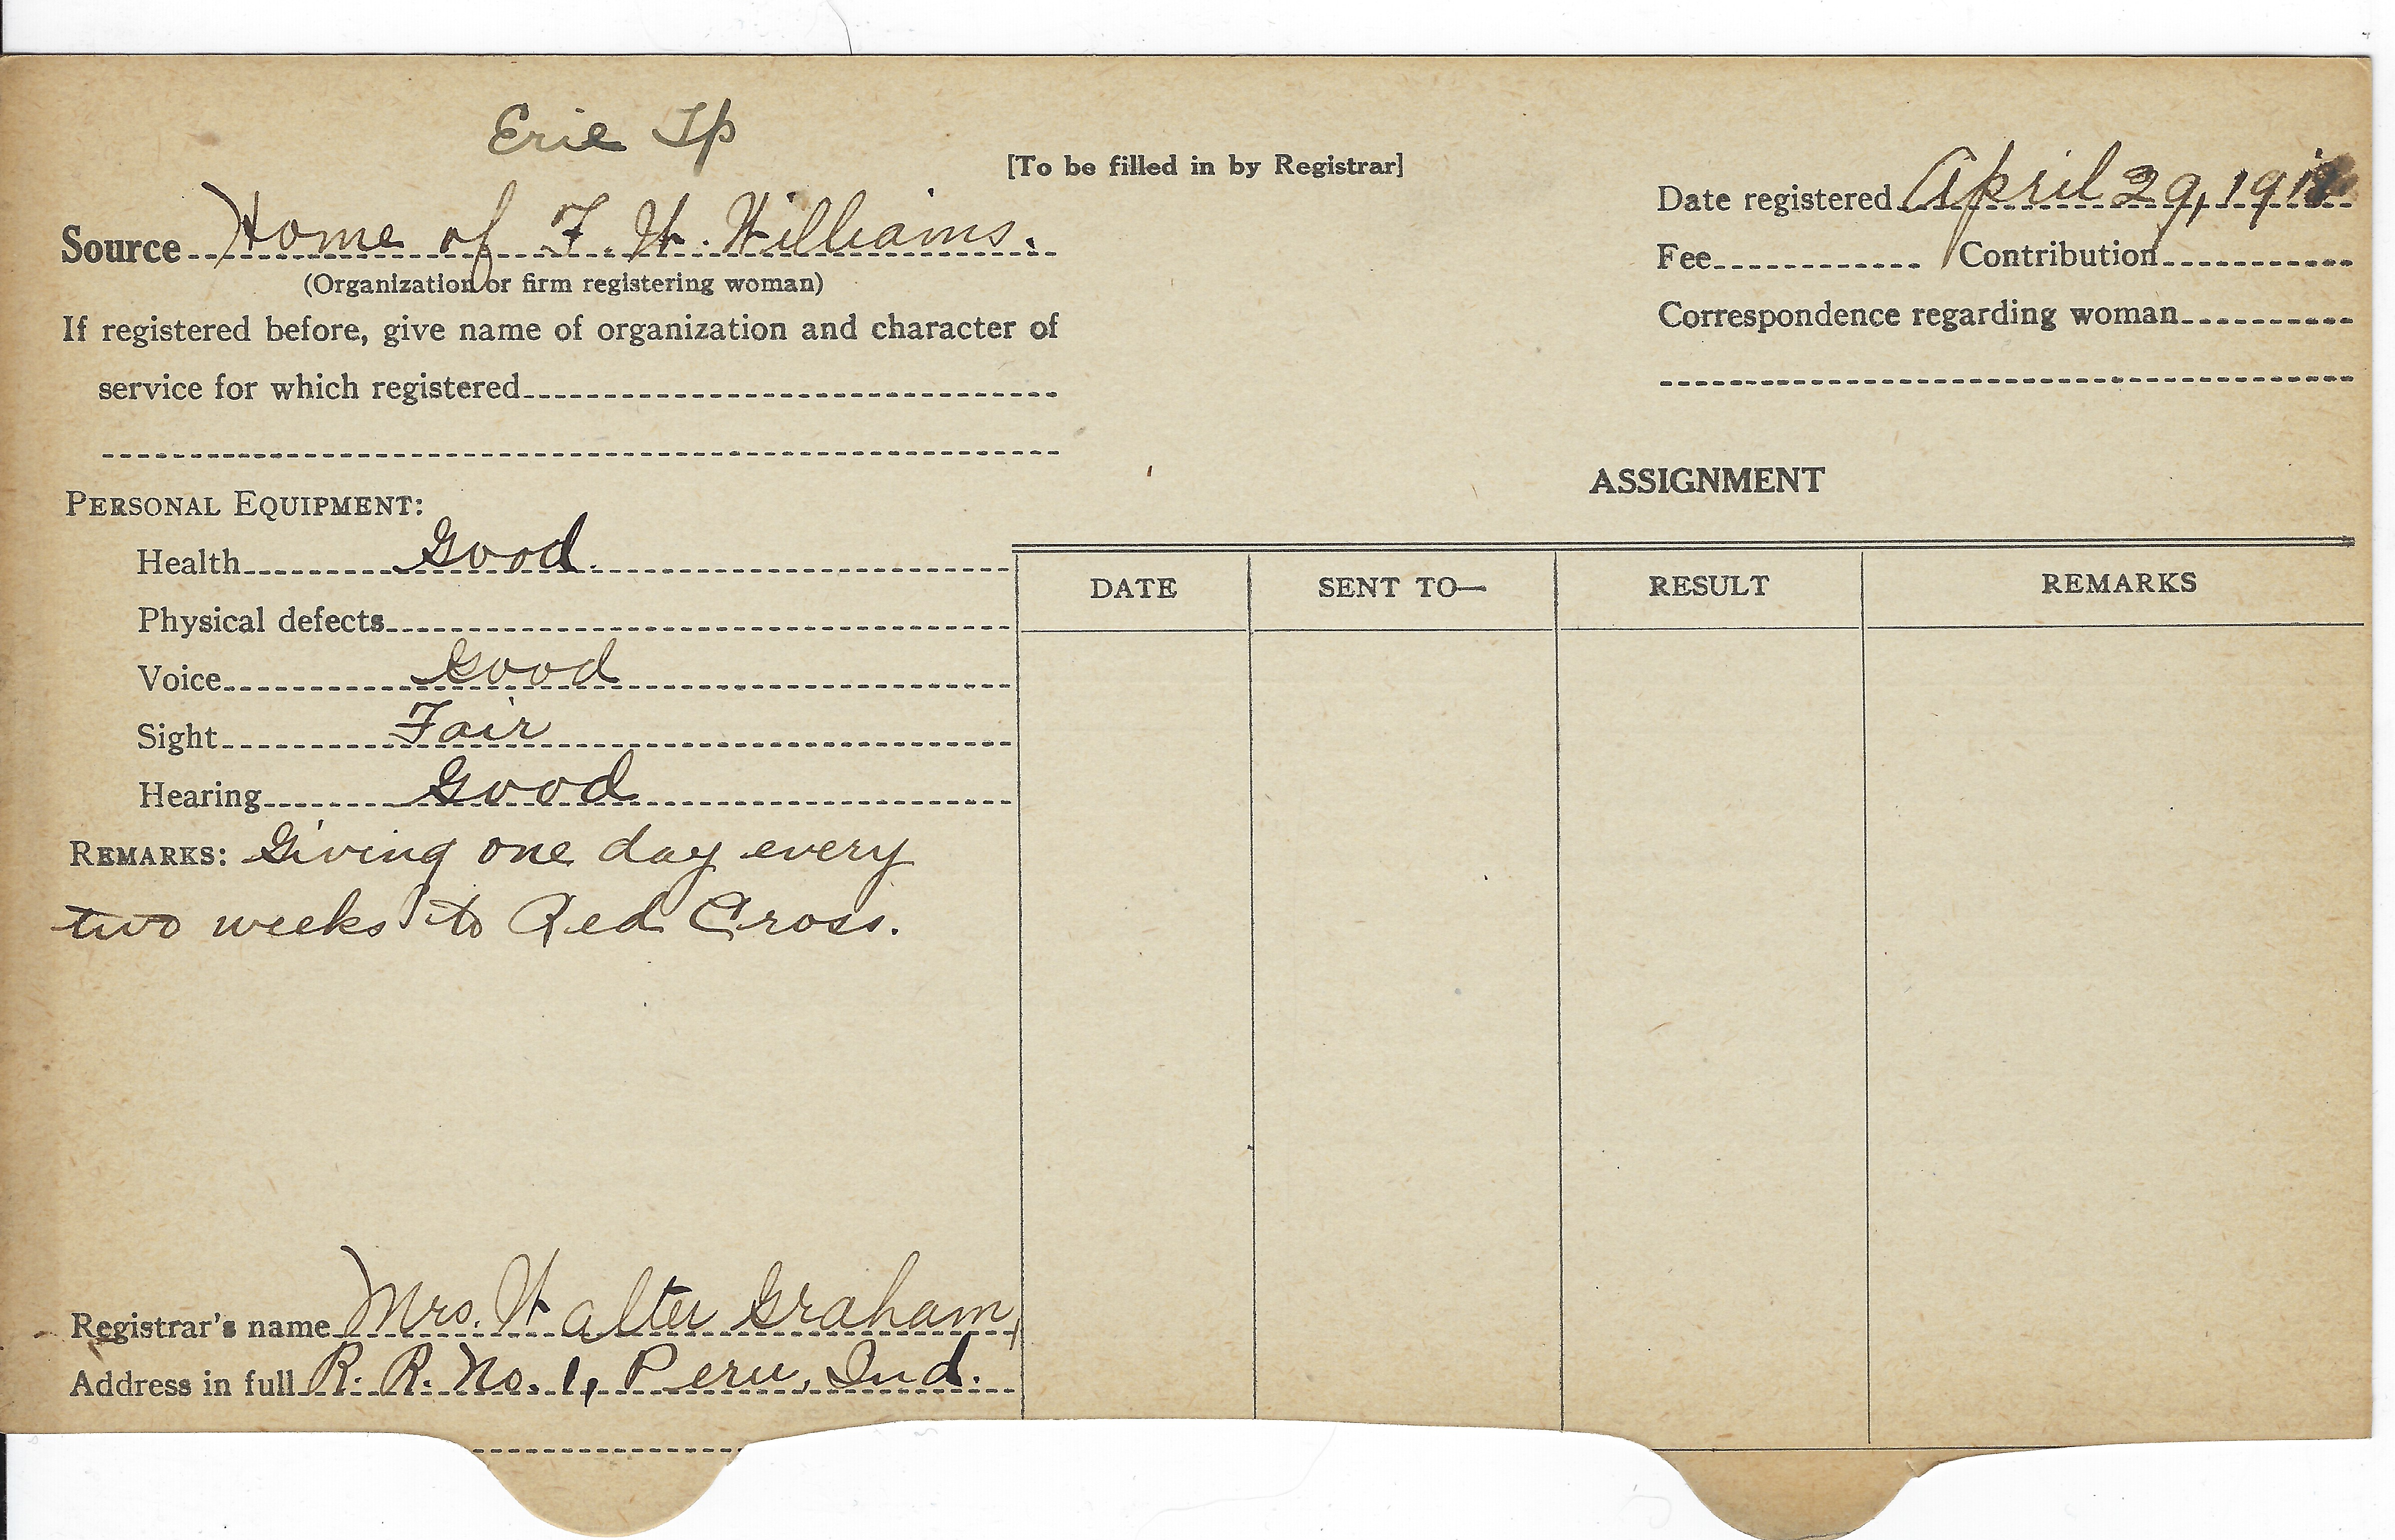 Erie Tp
[To be filled in by Registrar]
Date registered April 29, 1918
Source Home of F. W. Williams.
(Organization or firm registering woman)
Fee Contribution
If registered before, give name of organization and character of
service for which registered
Correspondence regarding woman
ASSIGNMENT
PERSONAL EQUIPMENT:
Health Good.
Physical defects
Voice Good
Sight Fair
Hearing Good
DATE SENT TO— RESULT REMARKS
REMARKS: Giving one day every
two weeks to Red Cross.
Registrar's name Mrs. Walter Graham,
Address in full R. R. No. 1, Peru, Ind.